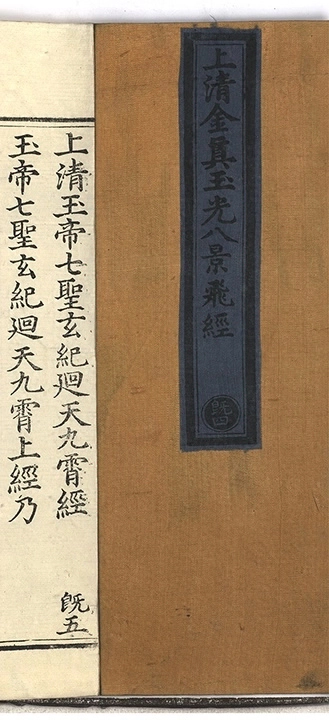 上清金真玉光八景飛經
既四
上清玉帝七聖玄紀廻天九霄經
既五
玉帝七聖玄紀廻天九霄上經乃